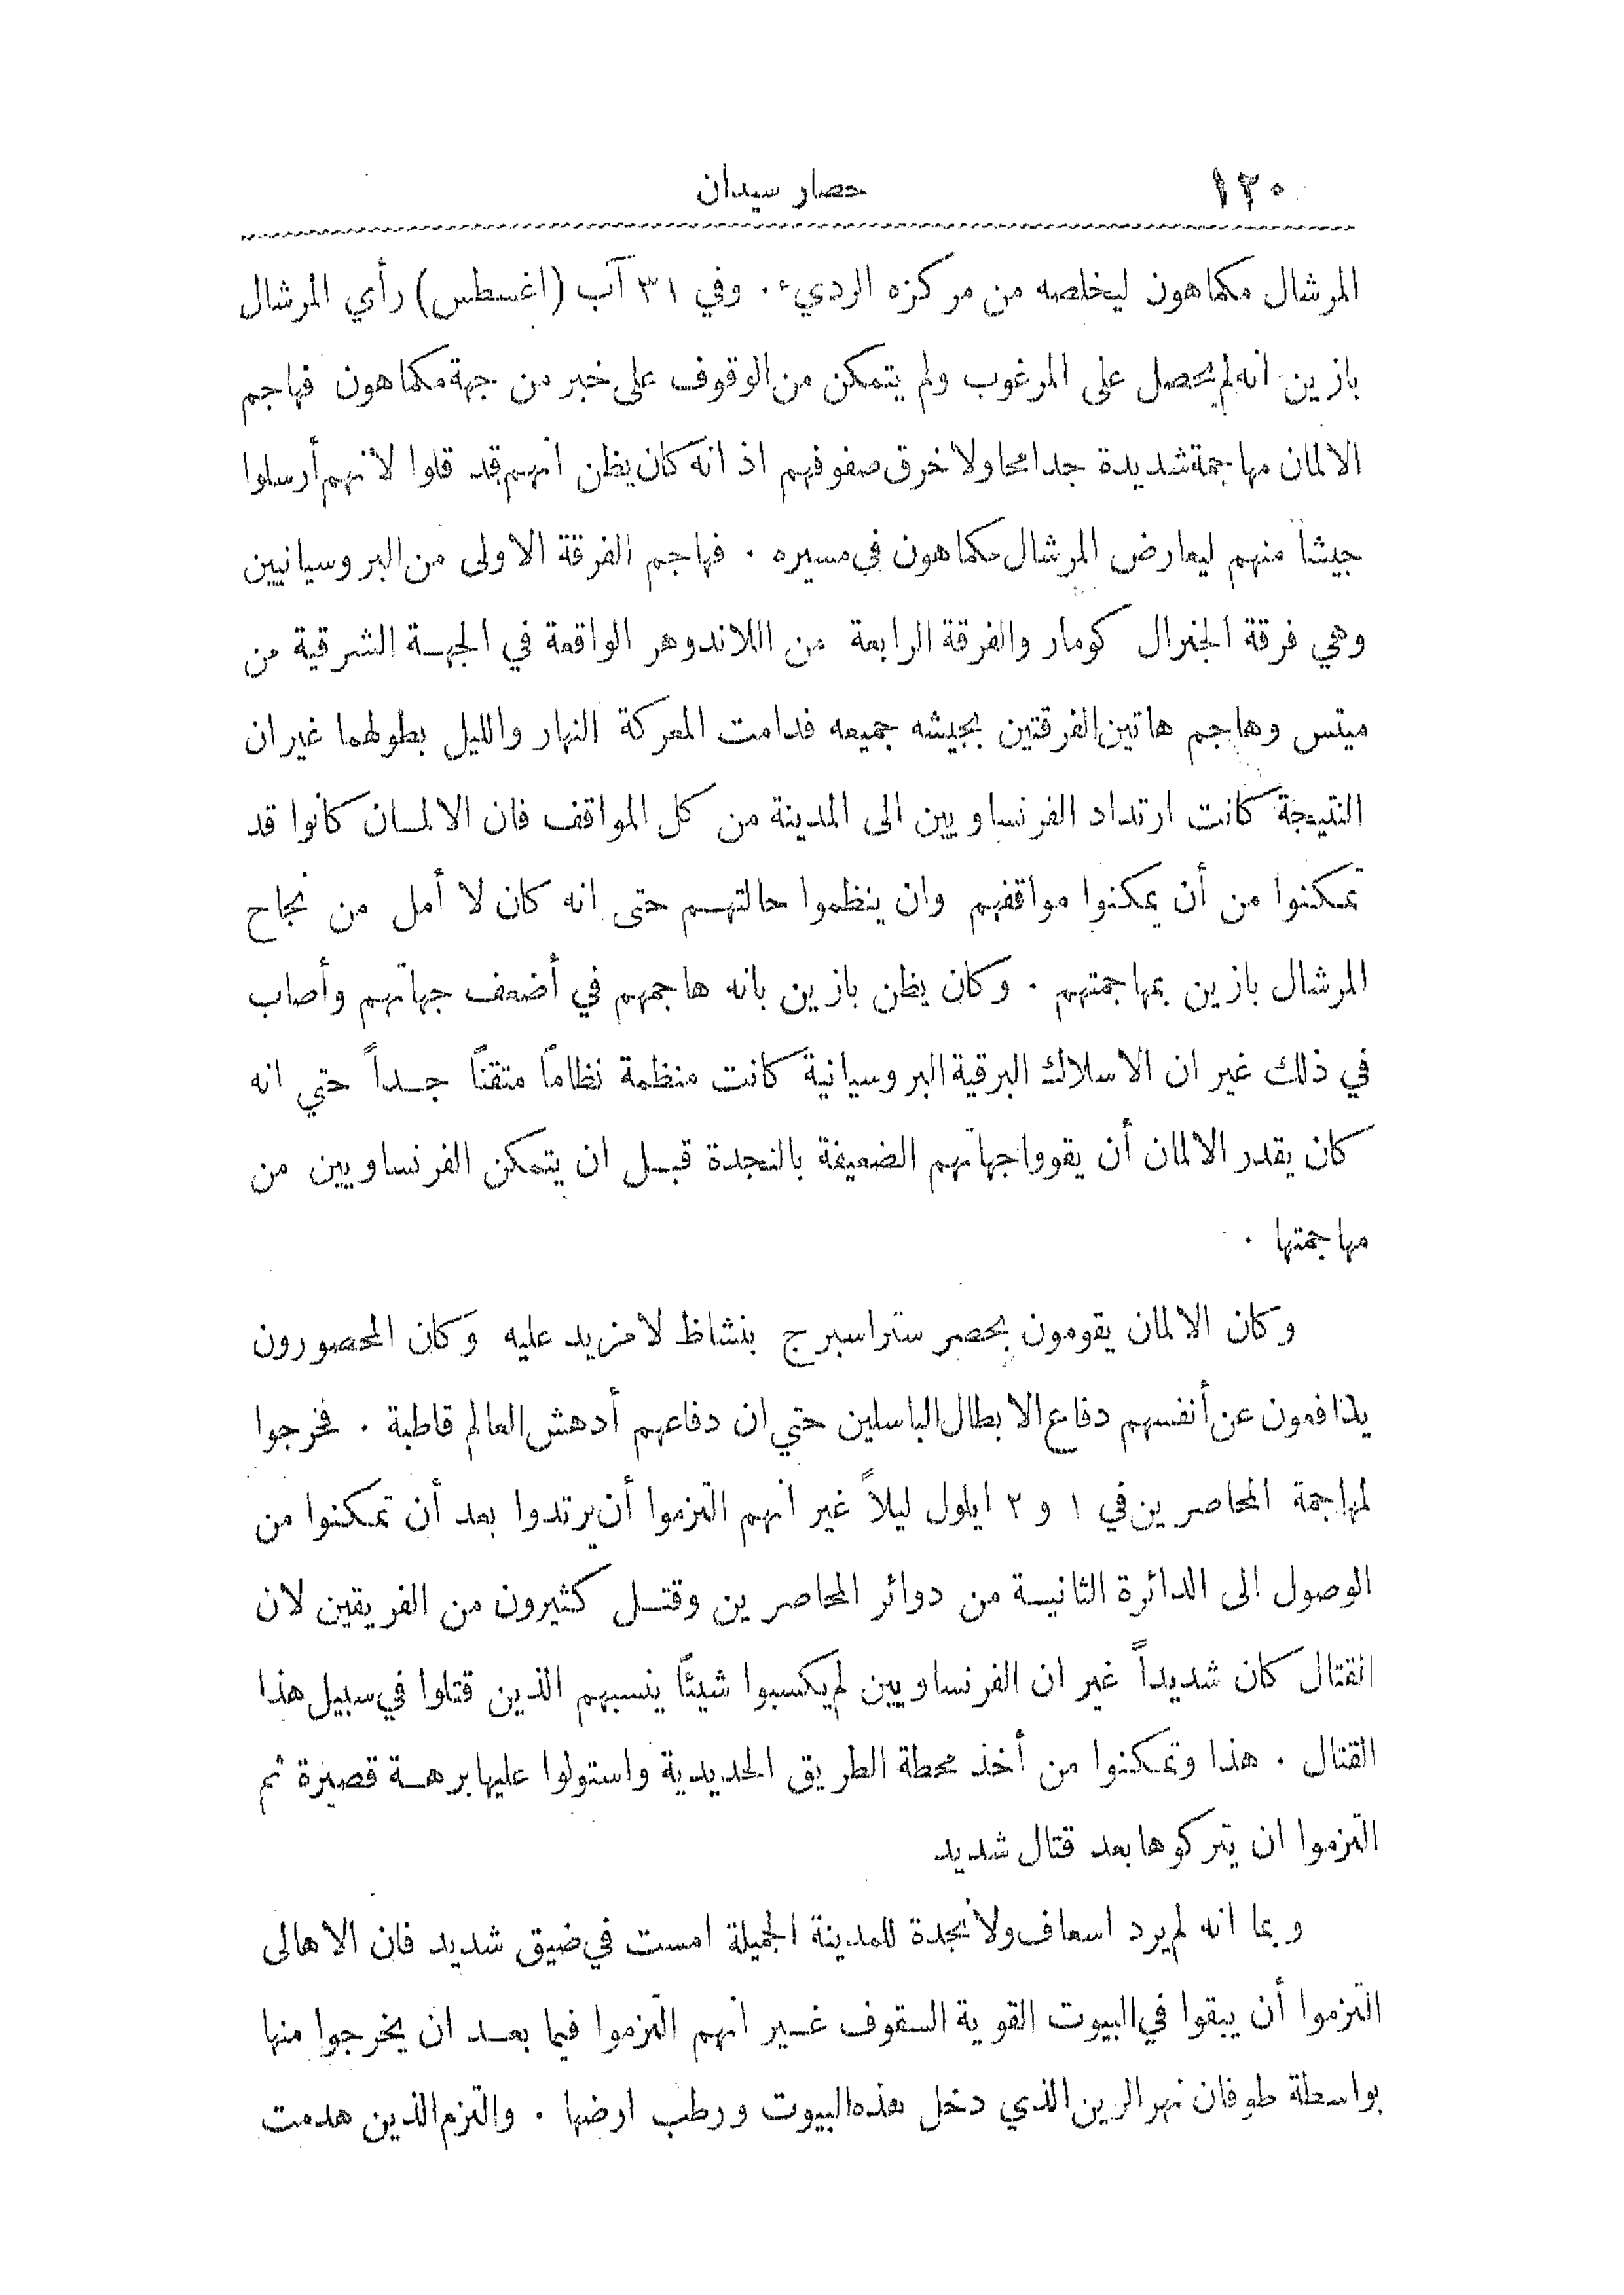 ١٣٠ حصار سيدان
المرشال مكماهون ليخلصه من مركزه الرديء . وفي ٣١ آب (اغسطس) رأي المرشال
بازين انه لم يحصل على المرغوب ولم يتمكن من الوقوف على خبر من جهة مكماهون فهاجم
الالمان مهاجمة شديدة جدا محاولا خرق صفوفهم اذ انه كان يظن انهم قد قلوا لانهم أرسلوا
جيشاً منهم ليعارض المرشال مكماهون في مسيره . فهاجم الفرقة الاولى من البروسيانيين
وهي فرقة الجنرال كومار والفرقة الرابعة من اللاندوهر الواقعة في الجهة الشرقية من
ميتس وهاجم هاتين الفرقتين بجيشه جميعه فدامت المعركة النهار والليل بطولهما غير ان
النتيجة كانت ارتداد الفرنساويين الى المدينة من كل المواقف فان الالمان كانوا قد
تمكنوا من أن يمكنوا مواقفهم وان ينظموا حالتهم حتى انه كان لا أمل من نجاح
المرشال بازين بمهاجمتهم . وكان يظن بازين بانه هاجمهم في أضعف جهاتهم وأصاب
في ذلك غير ان الاسلاك البرقية البروسيانية كانت منظمة نظاماً متقناً جداً حتي انه
كان يقدر الالمان أن يقووا جهاتهم الضعيفة بالنجدة قبل ان يتمكن الفرنساويين من
مهاجمتها .
وكان الالمان يقومون بحصر ستراسبرج بنشاظ لا مزيد عليه وكان المحصورون
يدافعون عن أنفسهم دفاع الابطال الباسلين حتي ان دفاعهم أدهش العالم قاطبة . فخرجوا
لمهاجمة المحاصرين في ١ و ٢ ايلول ليلاً غير انهم التزموا أن يرتدوا بعد أن تمكنوا من
الوصول الى الدائرة الثانية من دوائر المحاصرين وقتل كثيرون من الفريقين لان
القتال كان شديداً غير ان الفرنساويين لم يكسبوا شيئاً ينسبهم الذين قتلوا في سبيل هذا
القتال . هذا وتمكنوا من أخذ محطة الطريق الحديدية واستولوا عليها برهة قصيرة ثم
التزموا ان يتركوها بعد قتال شديد
وبما انه لم يرد اسعاف ولا نجدة للمدينة الجميلة امست في ضيق شديد فان الاهالى
التزموا أن يبقوا في البيوت القوية السقوف غير انهم التزموا فيما بعد ان يخرجوا منها
بواسطة طوفان نهر الرين الذي دخل هذه البيوت ورطب ارضها . والتزم الذين هدمت